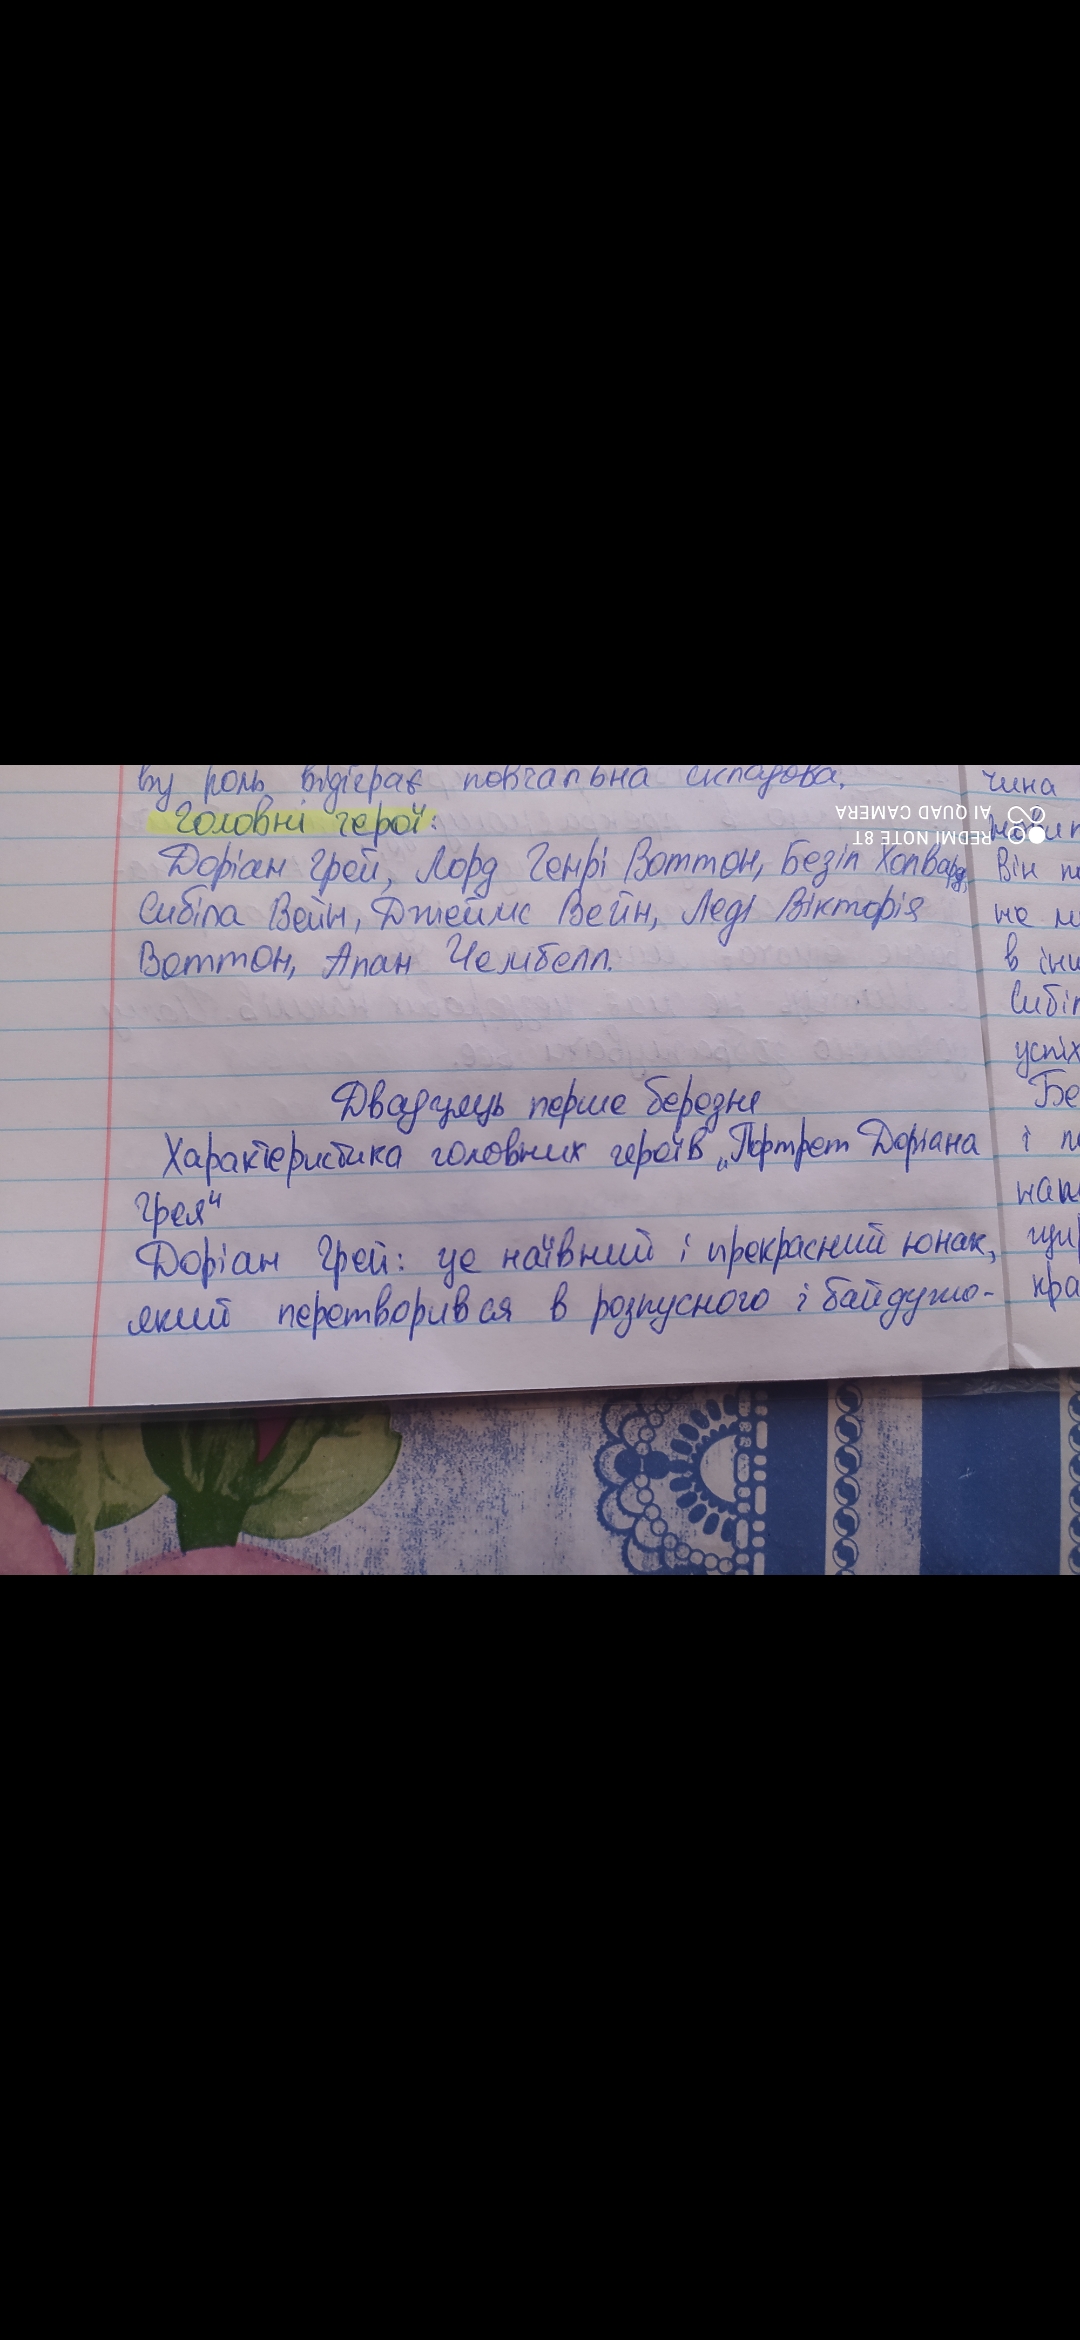 ву роль відіграє повчальна складова.
Головні герої:
Доріан Грей, Лорд Генрі Воттон, Безіл Холвард,
Сибіла Вейн, Джеймс Вейн, Леді Вікторія
Воттон, Алан Чембелл.
Двадцять перше березня
Характеристика головних героїв „Портрет Доріана
Грея"
Доріан Грей: це наївний і прекрасний юнак,
який перетворився в розпусного і байдужо-
чина
Він
не
в
успіх
і
REDMI NOTE 8T
AI QUAD CAMERA